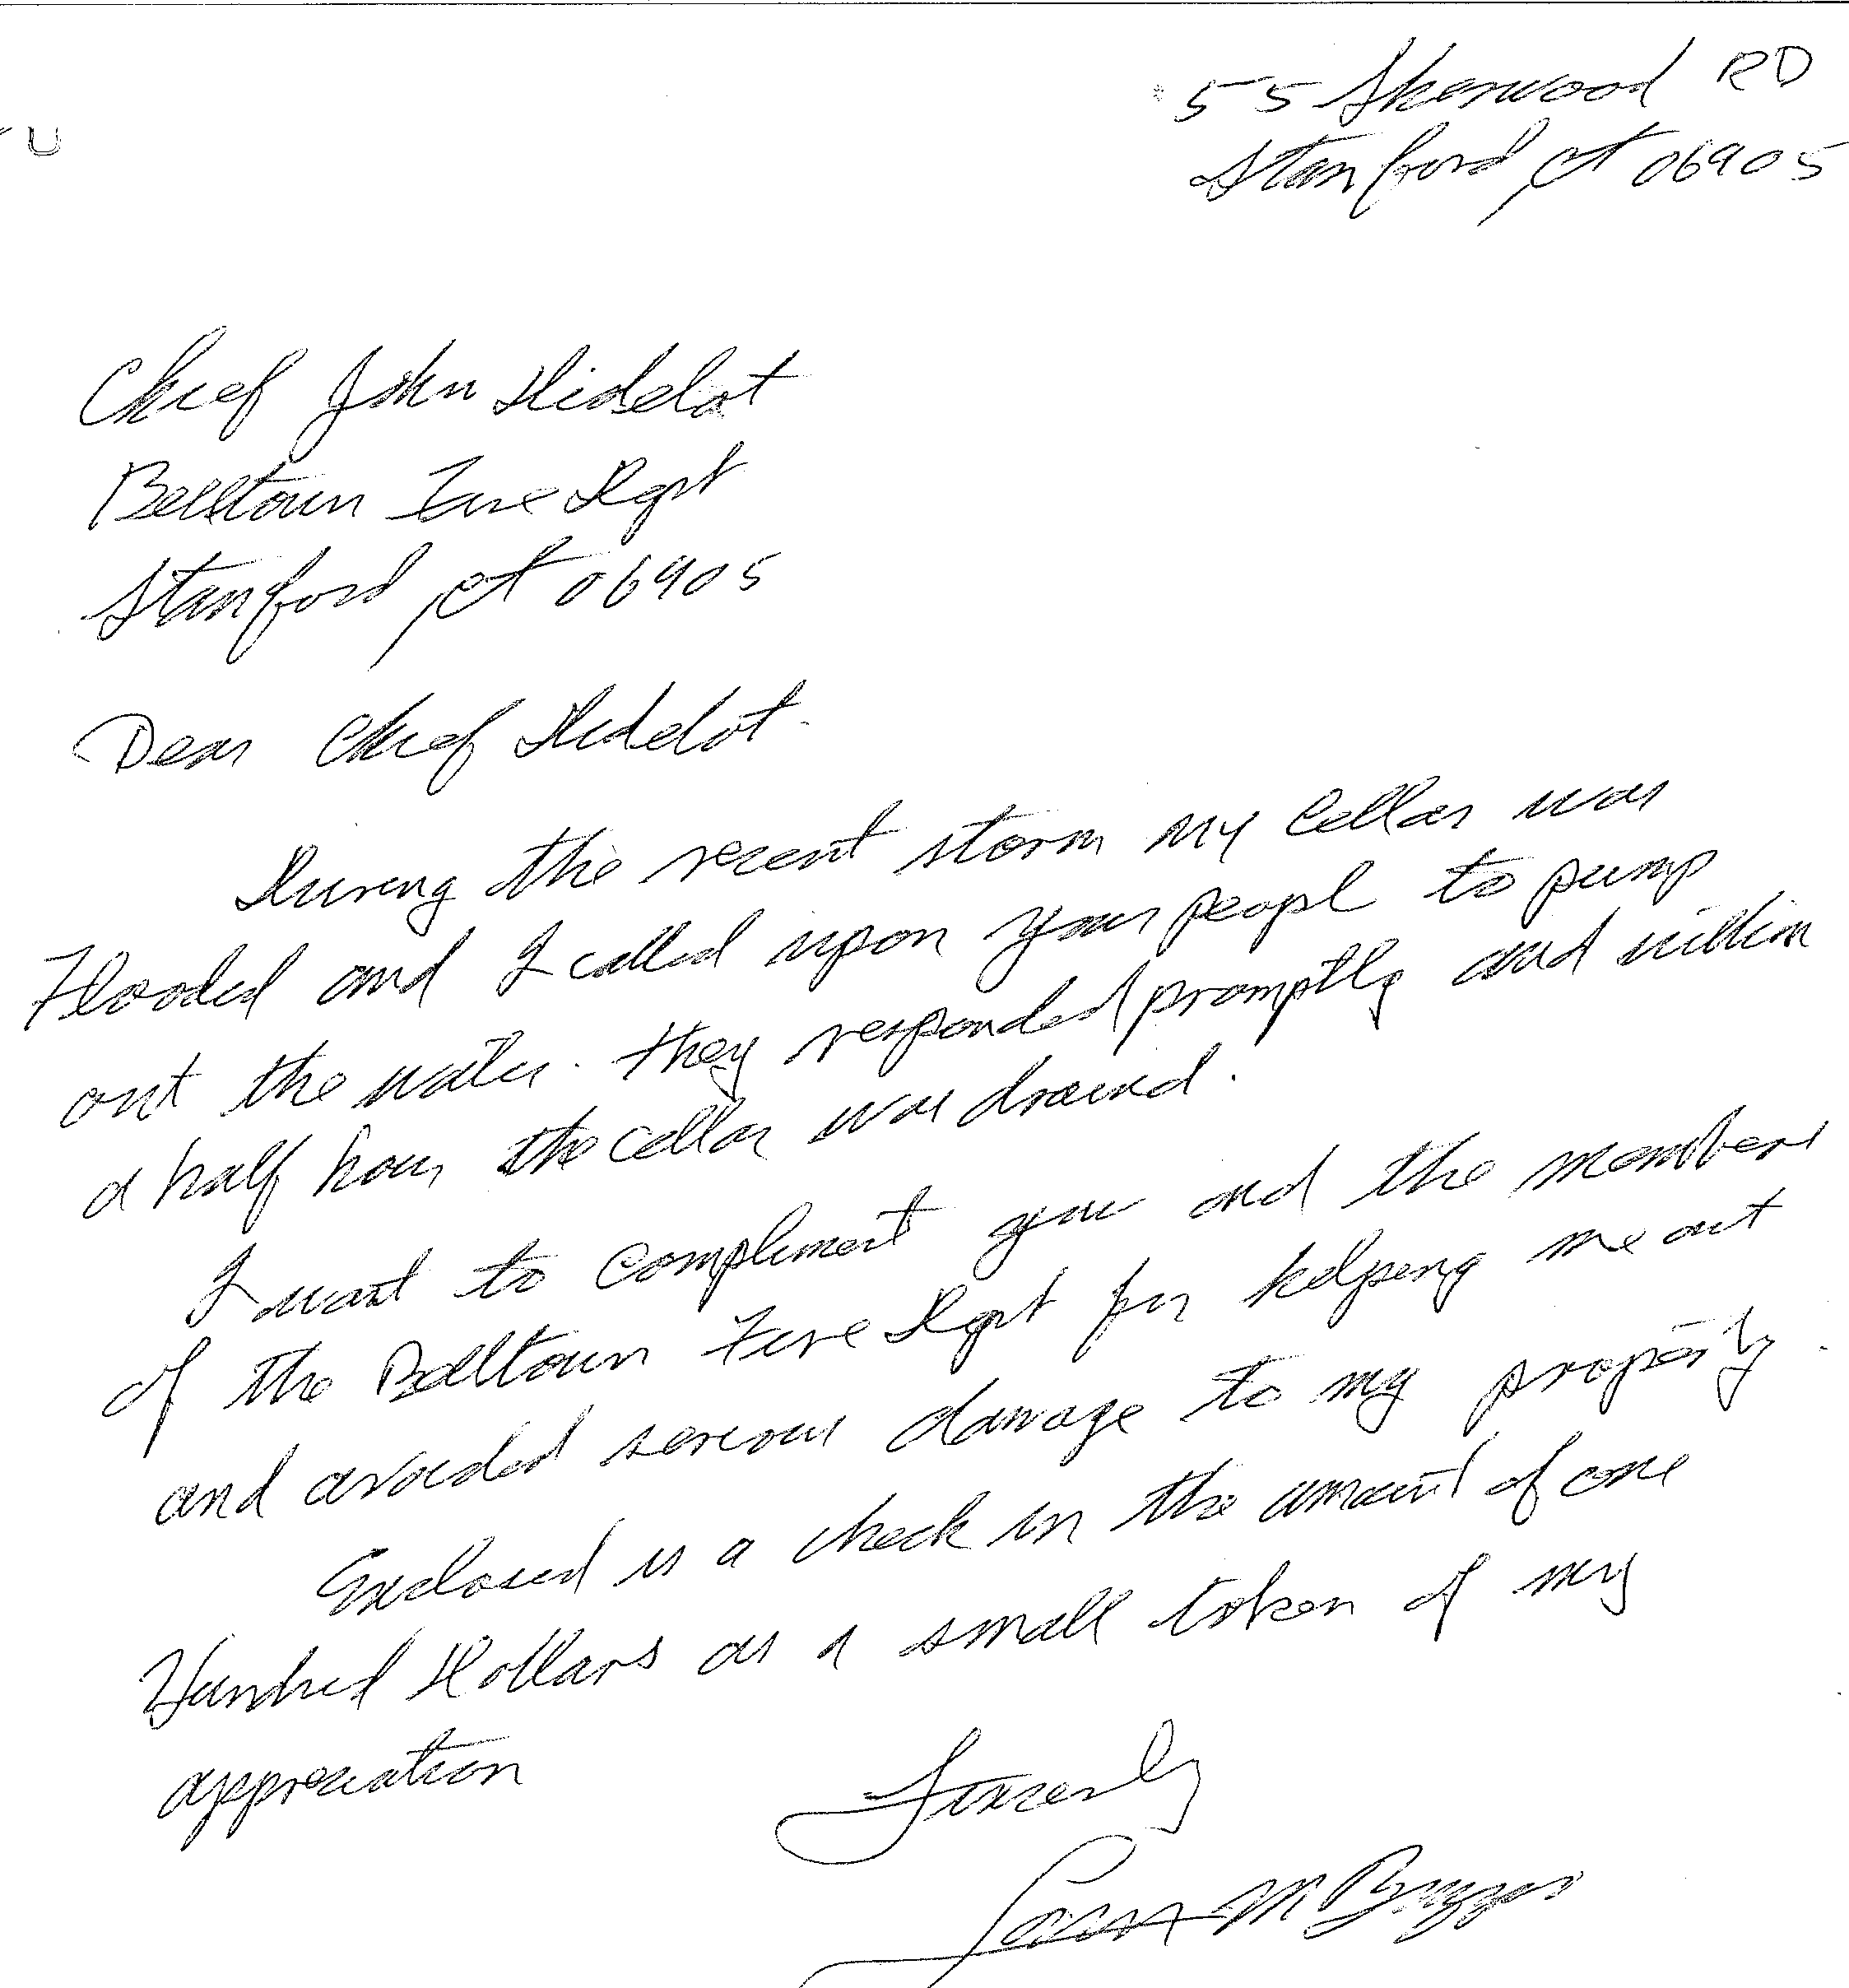 55 Sherwood RD
Stamford, Ct 06905
Chief John Didelot
Belltown Fire Dept
Stamford, Ct 06905
Dear Chief Didelot
During the recent storm my cellar was
Flooded and I called upon your peopl to pump
out the water. They responded promptly and within
a half hour the cellar was drained.
I want to compliment you and the members
of the Belltown Fire Dept for helping me out
and avoided serious damage to my property.
Enclosed is a check in the amount of one
Hundred Dollars as a small token of my
appreciation
Sincerly
M